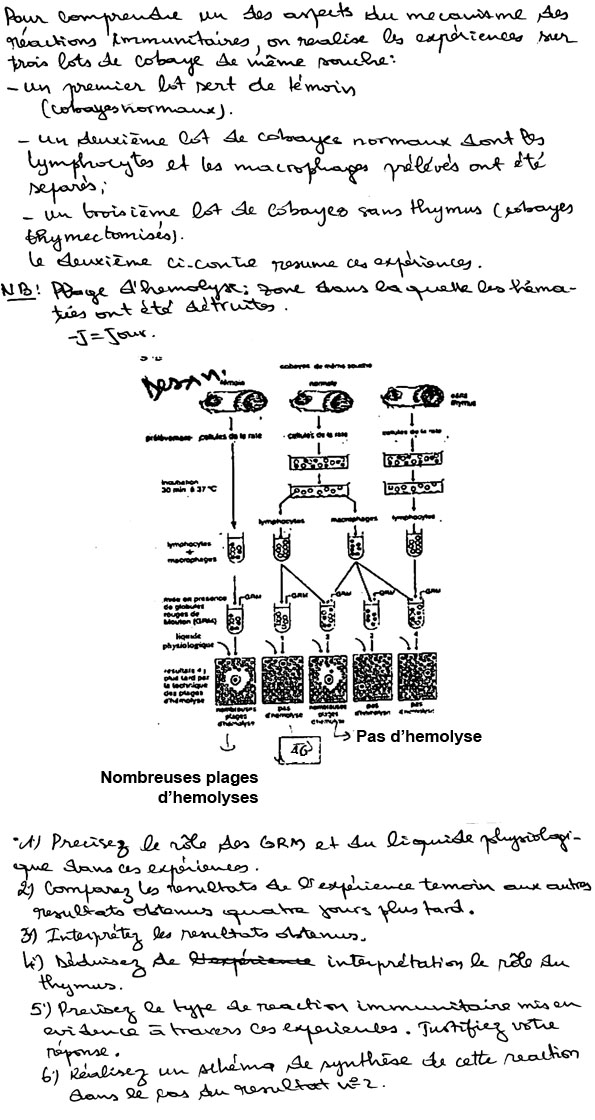 Pour comprendre un des aspects du mecanisme des
réactions immunitaires, on realise les expériences sur
trois lots de cobaye de même souche:
- un premier lot sert de témoin
(cobayes normaux).
- un deuxième lot de cobayes normaux dont les
lymphocytes et les macrophages prélévés ont été
separés;
- un troisième lot de cobayes sans thymus (cobayes
thymectomisés).
Le deuxième ci-contre resume ces expériences.
NB: Plage d'hemolyse: zone dans la quelle les héma-
ties ont été détruites.
-J=Jour.
cobayes de même souche
témoin normale sans thymus
prélèvement cellules de la rate cellules de la rate cellules de la rate
incubation
30 min à 37 °C
lymphocytes macrophages lymphocytes
lymphocytes
+
macrophages
mise en présence
de globules
rouges de
mouton (GRM)
GRM GRM GRM GRM GRM
liquide
physiologique
1 2 3 4
résultats 4 j
plus tard par
la technique
des plages
d'hémolyse
nombreuses plages d'hémolyse pas d'hémolyse nombreuses plages d'hémolyse pas d'hémolyse pas d'hémolyse
Pas d'hemolyse
Nombreuses plages
d'hemolyses
1) Precisez le rôle des GRM et du liquide physiologi-
que dans ces expériences.
2) Comparez les resultats de l'expérience temoin aux autres
resultats obtenus quatre jours plus tard.
3) Interprétez les resultats obtenus.
4) Déduisez de l'expérience interprétation le rôle du
thymus.
5) Precisez le type de reaction immunitaire mis en
evidence à travers ces experiences. Justifiez votre
réponse.
6) Réalisez un schéma de synthèse de cette reaction
dans le cas du resultat n°2.